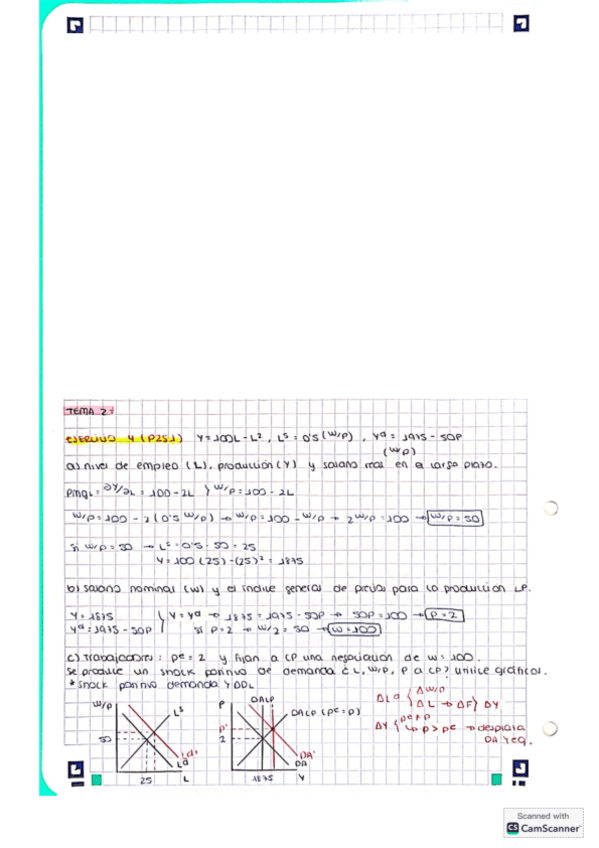 TEMA 2:
EJERCICIO 4 (P251) Y=100L-L², Lˢ=0'5(W/P), Yᵈ=1975-50P
(W/P)
a) nivel de empleo (L), producción (Y) y salario real en el largo plazo.
PmgL = ∂Y/∂L = 100-2L } W/P=100-2L
W/P=100-2(0'5 W/P) → W/P=100-W/P → 2W/P=100 → W/P=50
Si W/P=50 → Lˢ=0'5·50=25
Y=100(25)-(25)²=1875
b) salario nominal (W) y el índice general de precios para la producción LP.
Y=1875 } Y=Yᵈ → 1875=1975-50P → 50P=100 → P=2
Yᵈ=1975-50P } Si P=2 → W/2=50 → W=100
c) Trabajadores: Pᵉ=2 y fijan a CP una negociación de W=100.
Se produce un shock positivo de demanda ¿L, W/P, P a CP? utilice gráficos.
* shock positivo demanda
W/P Lˢ 50 Ld' Ld 25 L
P OALP OACP (Pᵉ=P) P' 2 DA' DA 1875 Y
ΔLd { ΔW/P
ΔL → ΔF } ΔY
ΔY { Pᵉ≠P
↳ P>Pᵉ → desplaza
OA y eq.
Scanned with
CS CamScanner